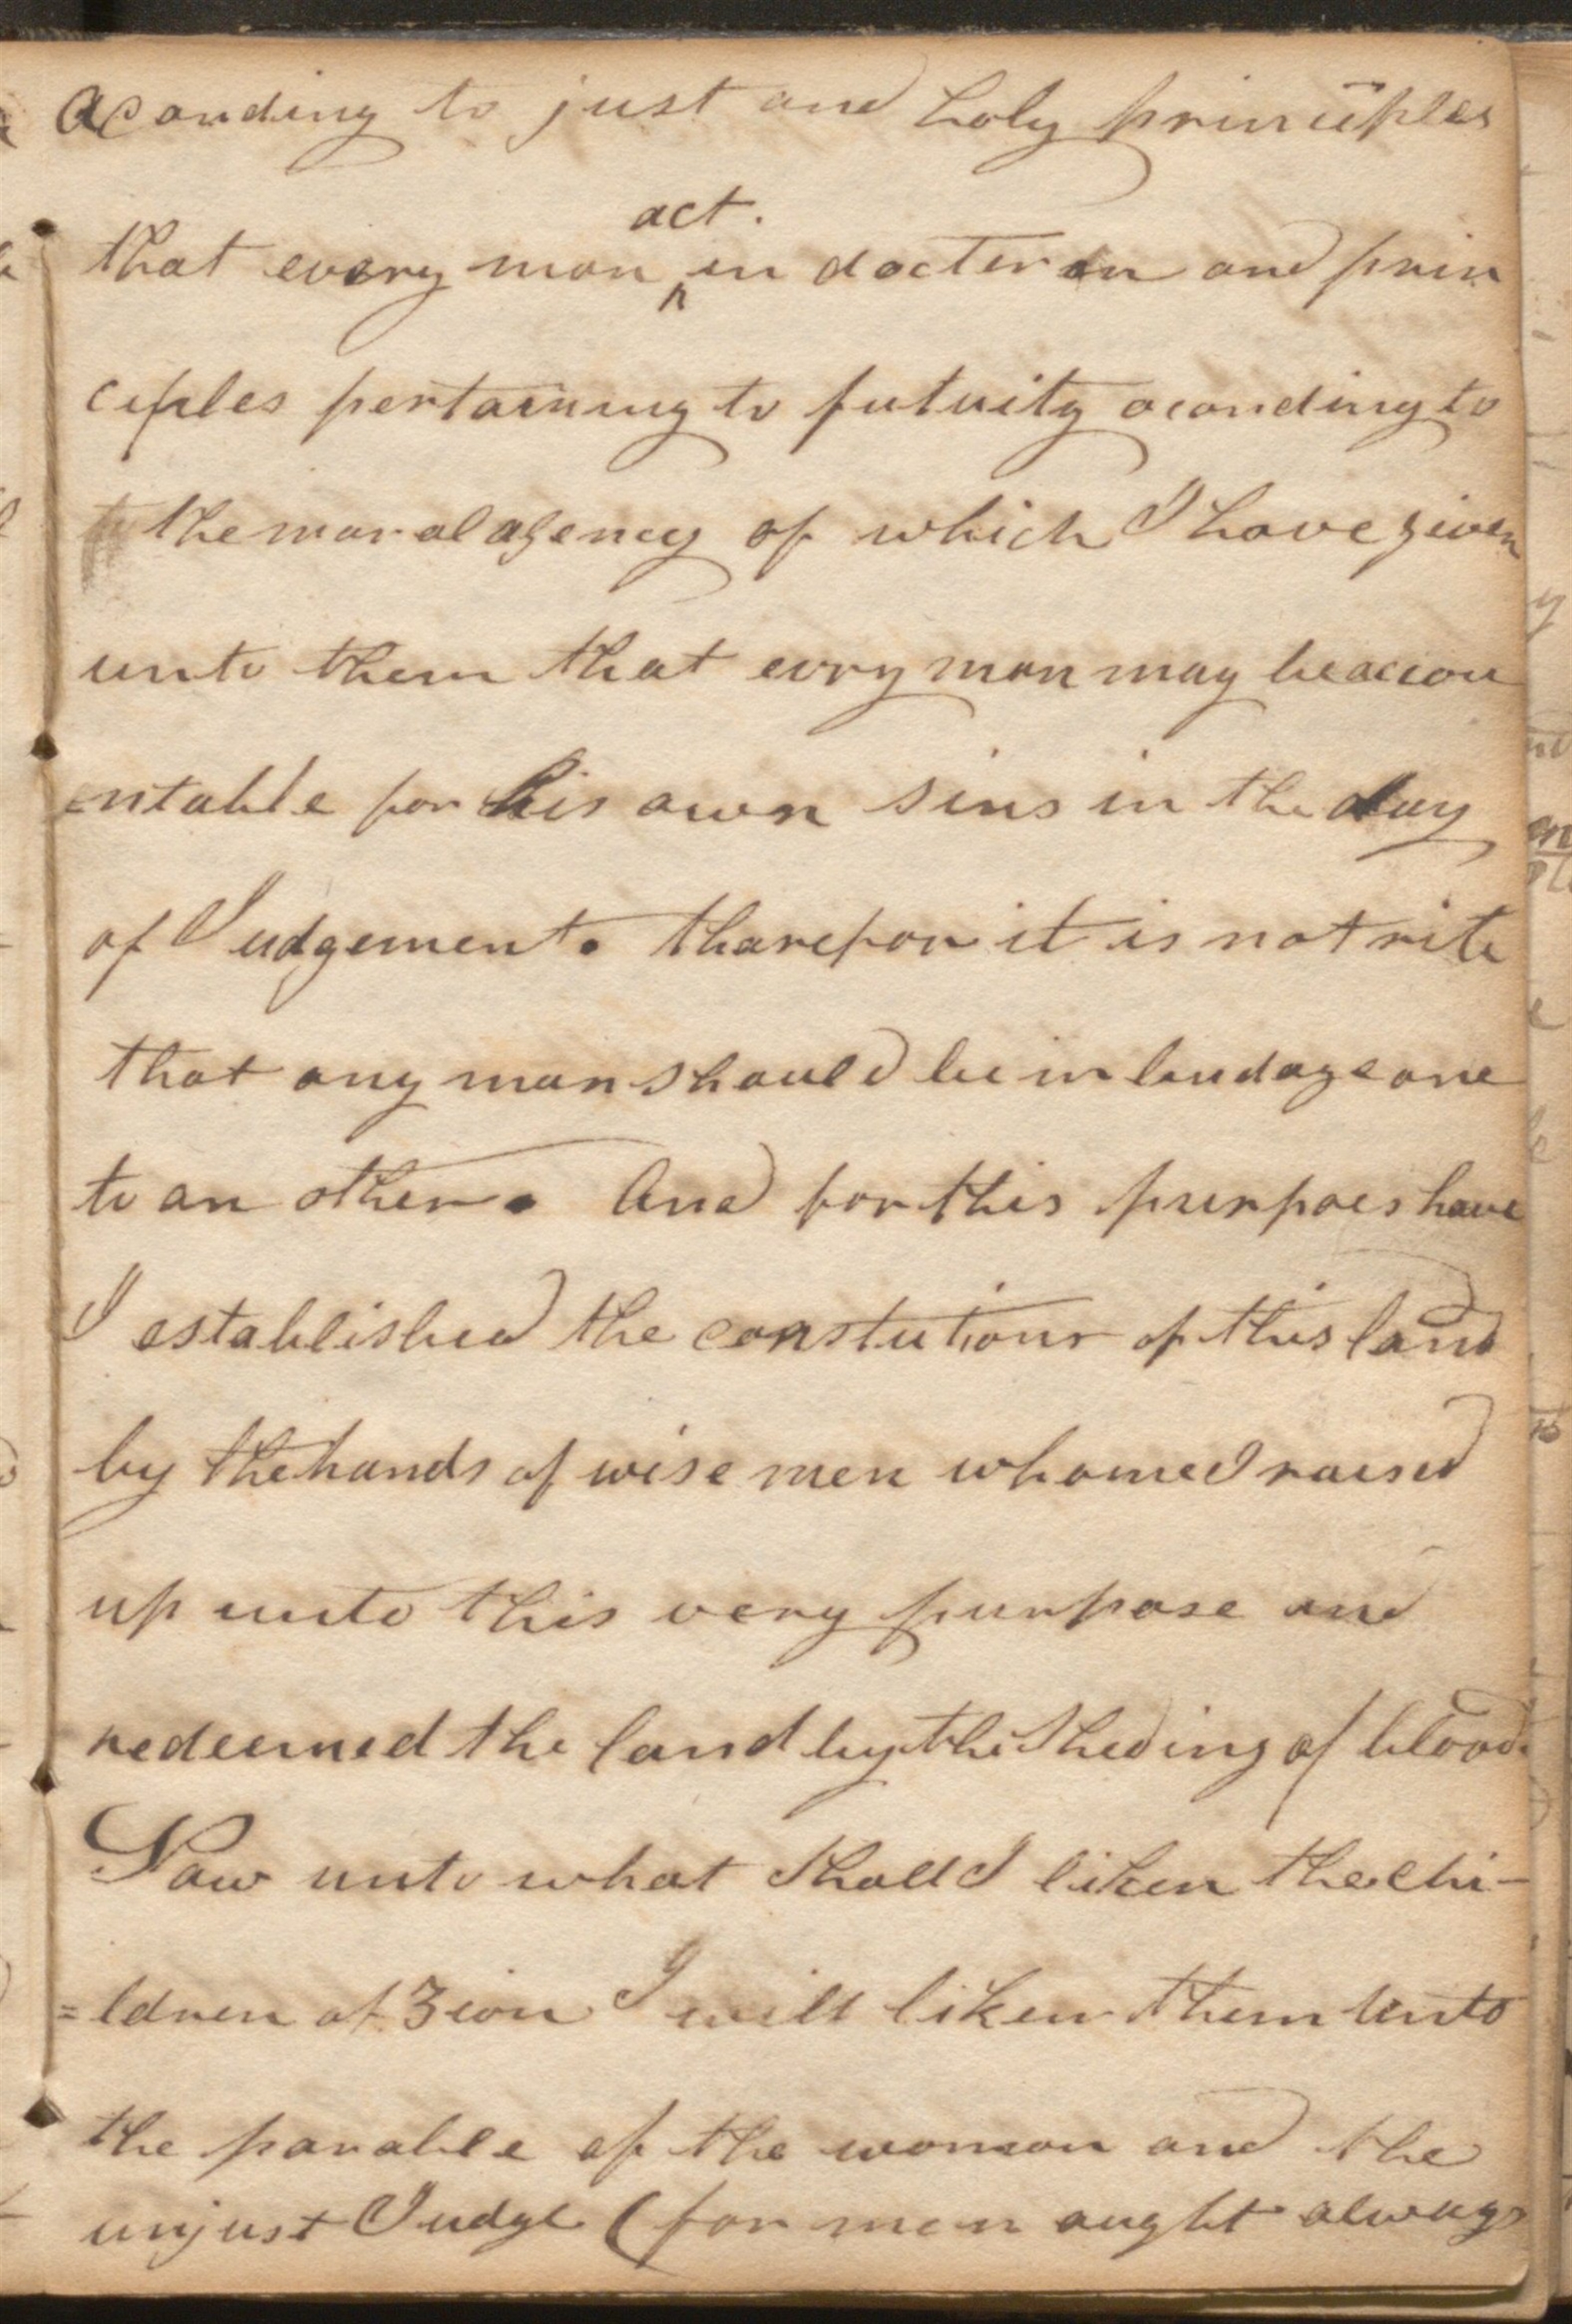 acording to just and holy principles
act.
that every man ^ in docteren and prin
ciples pertaining to futuity acording to
the moral agency of which I have given
unto them that evry man may be accou
entable for his own sins in the day
of Judgement. tharefor it is not rite
that any man should be in bondage one
to an other. And for this purpoes have
I established the constutions of this land
by the hands of wise men whome I raised
up unto this very purpose and
redeemed the land by the Sheding of blood.
Naw unto what Shall I liken the chi-
=ldren of Zion I will liken them unto
the parable of the woman and the
unjust Judge (for men aught always